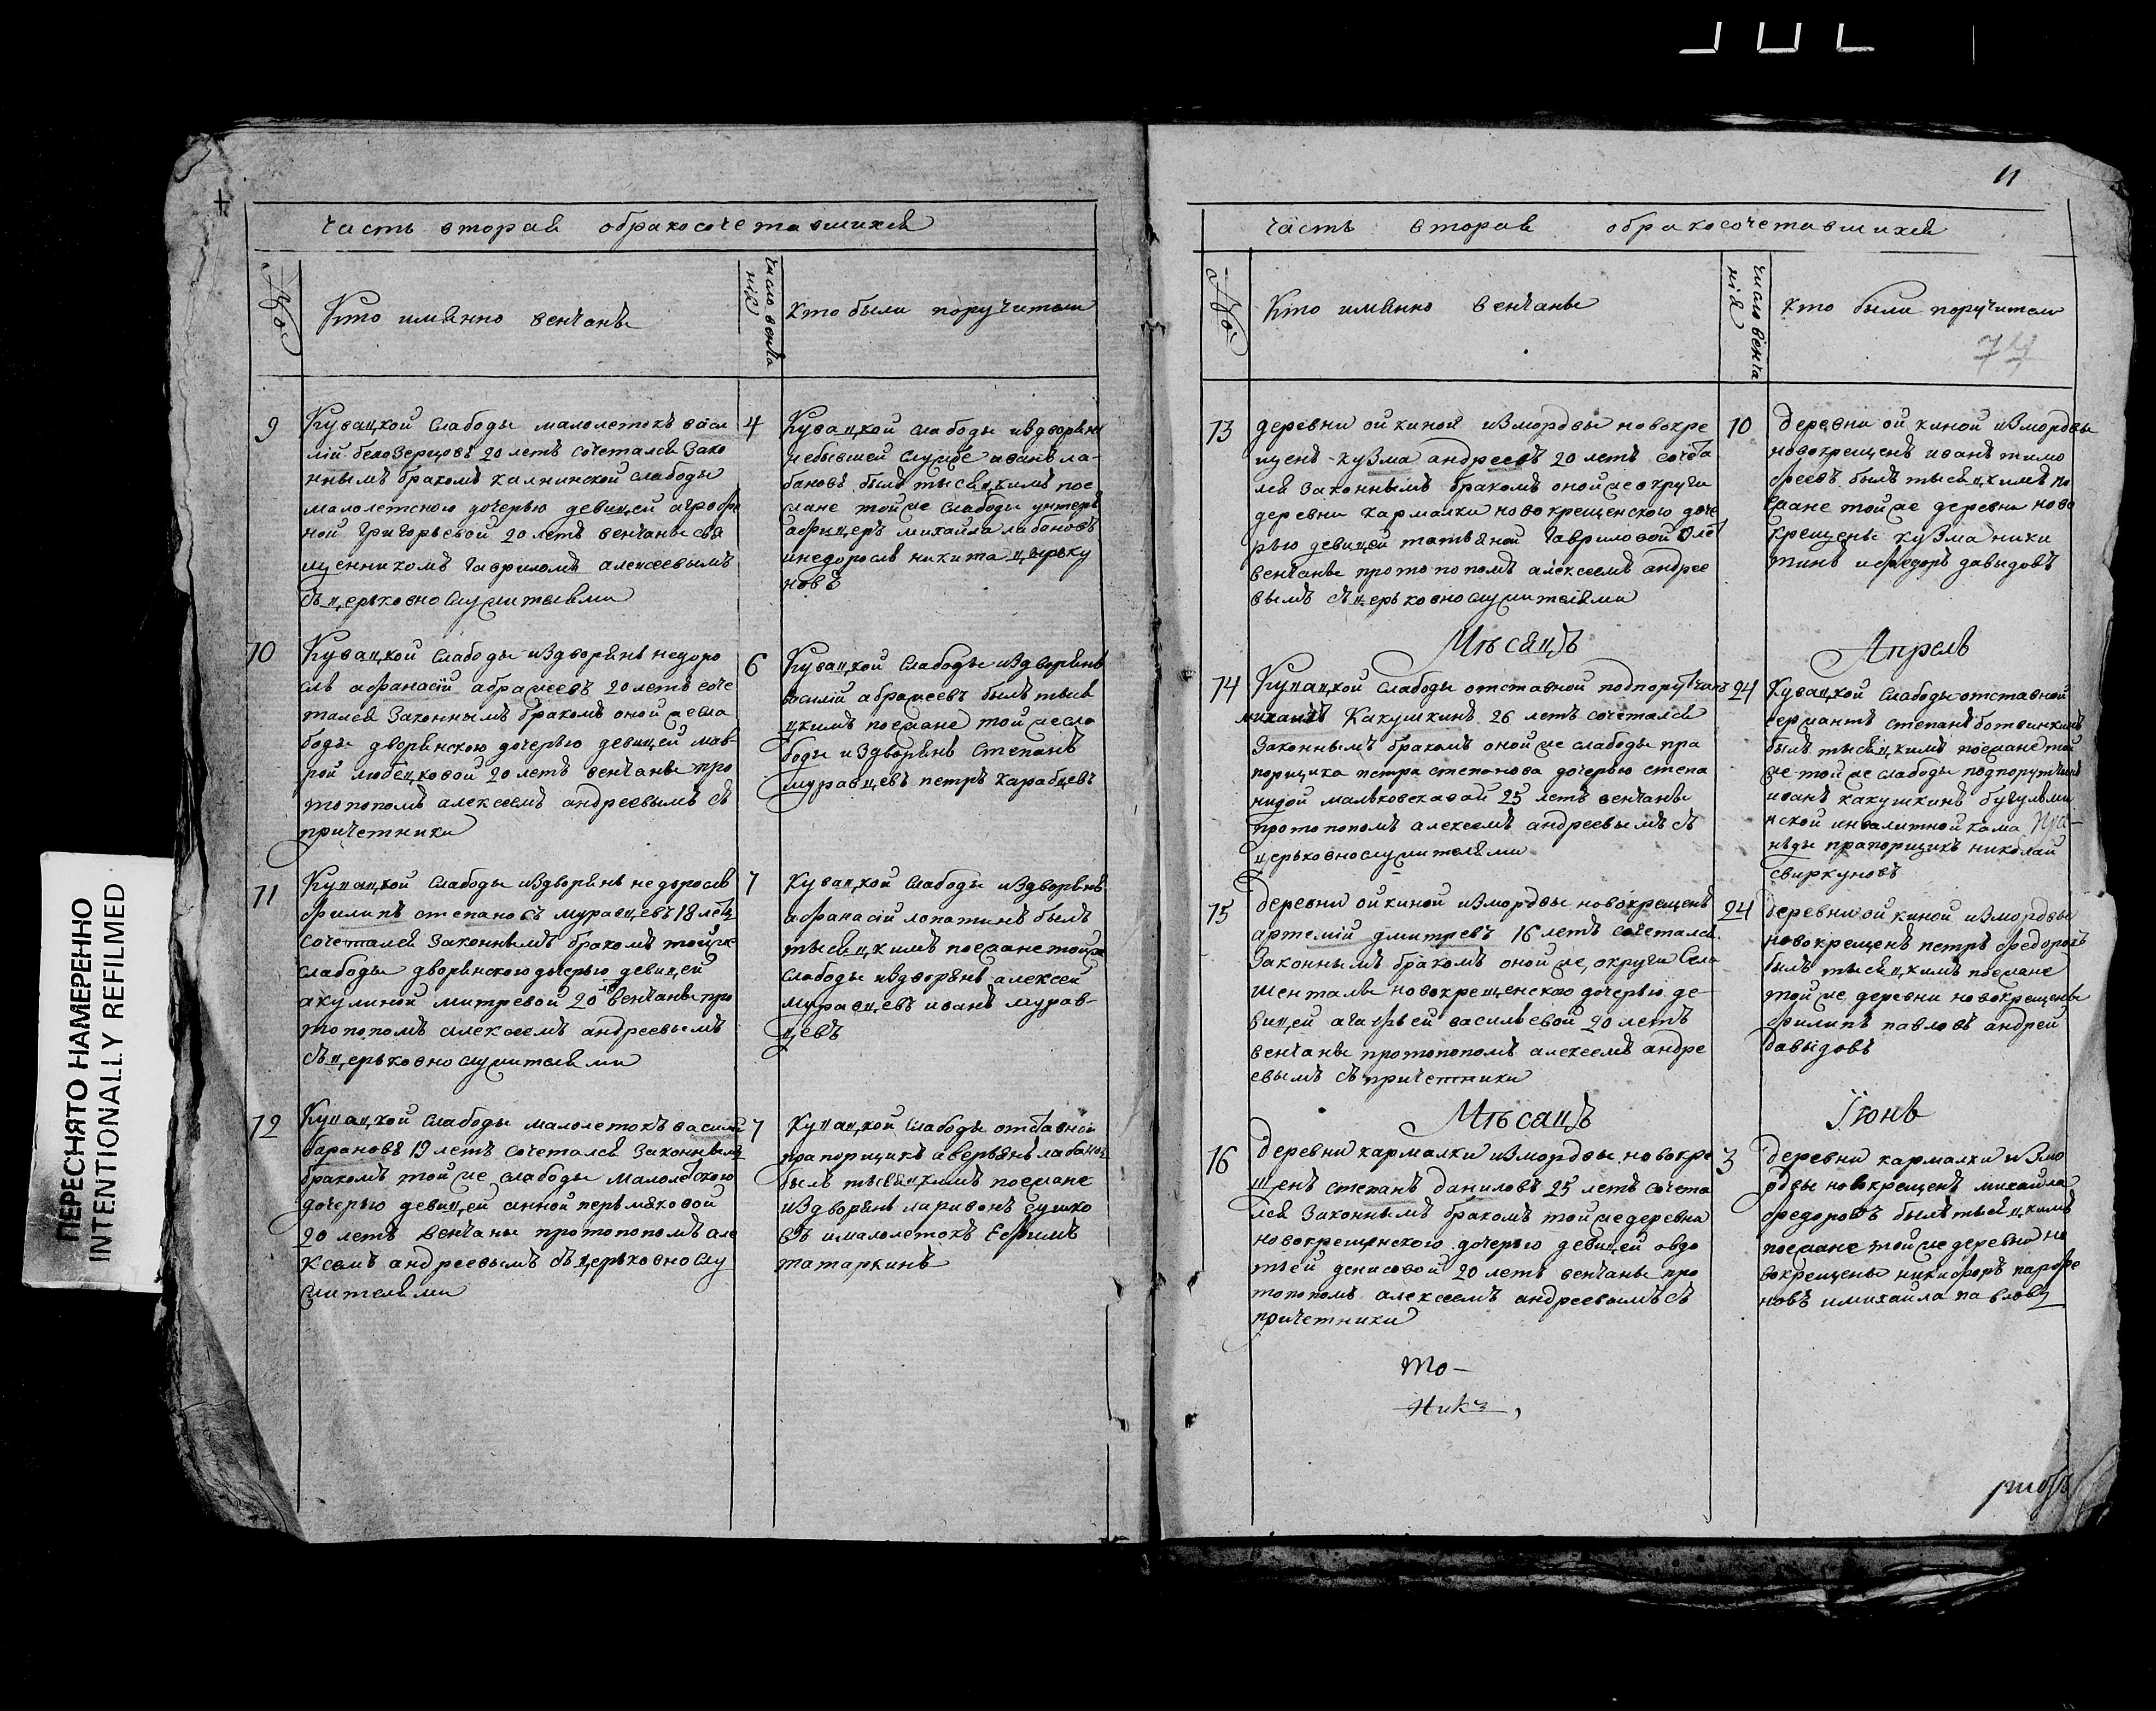 ПЕРЕСНЯТО НАМЕРЕННО
INTENTIONALLY REFILMED
часть вторая обракосочетавшихся
№
Кто имянно венчаны
число венча
нія
кто были поручители
9
Кувацкой слабоды малолетокъ васи
лій белозерцовъ 20 летъ сочетался зако
ннымъ бракомъ калнинской слабоды
малолетскою дочерью девицей агрофе
ной григорьевой 20 летъ венчаны свя
щенникомъ гавриломъ алексеевымъ
съ церьковнослужительми
4
Кувацкой слабоды издворянъ
небывшей службе иванъ ла-
бановъ былъ тысяцкимъ поe
жане тойже слабоды унтеръ
афицеръ михайла лабановъ
инедоросль никита
новъ
10
Кувацкой слабоды издворянъ недоро
сль афанасій абражеевъ 20 летъ соче
тался законнымъ бракомъ оной жесла
боды дворянскою дочерью девицей мав-
рой любецковой 20 летъ венчаны про
топопомъ алексеемъ андреевымъ съ
причетники
6
Кувацкой слабоды издворянъ
василій абражеевъ былъ тыся
цкимъ поежане той жесло
боды издворянъ степанъ
муравцевъ петръ карабцевъ
11
Кувацкой слабоды издворянъ недоросль
филипъ степановъ муравцевъ 18 летъ
сочетался законнымъ бракомъ тойже
слабоды дворянскою дочерью девицей
акулиной митревой 20 венчаны про
топопомъ алексеемъ андреевымъ
съ церьковнослужителями
7
Кувацкой слабоды издворянъ
афанасій лопатинъ былъ
тысяцкимъ поежане тойже
слабоды издворянъ алексей
муравцевъ иванъ мурав-
цевъ
12
Кувацкой слабоды малолетокъ василій
барановъ 19 летъ сочетался законнымъ
бракомъ той же слабоды малолетскою
дочерью девицей анной пермяковой
20 летъ венчаны протопопомъ але
ксеемъ андреевымъ съ церьковнослу
жителями
7
Кувацкой слабоды отставной
прапорщикъ аверьянъ лабановъ
былъ тысяцкимъ поежане
издворянъ ларивонъ сушко
въ ималолетокъ Ефимъ
татаркинъ
11
часть вторая обракосочетавшихся
№
Кто имянно венчаны
число венча
нія
кто были поручители
74
13
деревни ойкиной измордвы новокре
щенъ кузма андреевъ 20 летъ сочета
лся законнымъ бракомъ оной же округи
деревни кармалки новокрещенскою доче
рью девицей татьяной гавриловой
венчаны протопопомъ алексеемъ андрее
вымъ съ церьковнослужителями
10
деревни ойкиной измордвы
новокрещенъ иванъ тимо
феевъ былъ тысяцкимъ по
ежане той же деревни ново
крещены кузма ники
тинъ ифедоръ давыдовъ
Мѣсяцъ
Апрель
14
Кувацкой слабоды отставной подпорутчикъ
Какушкинъ 26 летъ сочетался
законнымъ бракомъ оной же слабоды пра
порщика петра степанова дочерью степа
нидой мальковскавай 25 летъ венчаны
протопопомъ алексеемъ андреевымъ съ
церьковнослужителями
24
Кувацкой слабоды отставной
сержантъ степанъ ботвинкинъ
былъ тысяцкимъ поежане той
же той же слабоды подпорутчикъ
иванъ какушкинъ бугульми
нской инвалитной кома
нды прапорщикъ николай
свиркуновъ
15
деревни ойкиной измордвы новокрещенъ
артемій дмитревъ 16 летъ сочетался
законнымъ бракомъ оной же округи села
шенталы новокрещенскою дочерью де-
вицей агафьей васильевой 20 летъ
венчаны протопопомъ алексеемъ андре
евымъ съ причетники
24
деревни ойкиной измордвы
новокрещенъ петръ федоровъ
былъ тысяцкимъ поежане
той же деревни новокрещены
филипъ павловъ андрей
давыдовъ
Мѣсацъ
Іюнь
16
деревни кармалки измордвы новокре
щенъ степанъ даниловъ 25 летъ сочета
лся законнымъ бракомъ той же деревни
новокрещенскою дочерью девицей овдо
тьей денисовой 20 летъ венчаны про
топопомъ алексеемъ андреевымъ съ
причетники
3
деревни кармалки измо
рдвы новокрещенъ михайла
федоровъ былъ тысяцкимъ
поежане той же деревни но
вокрещены никифоръ парфе
новъ имихайла павловъ